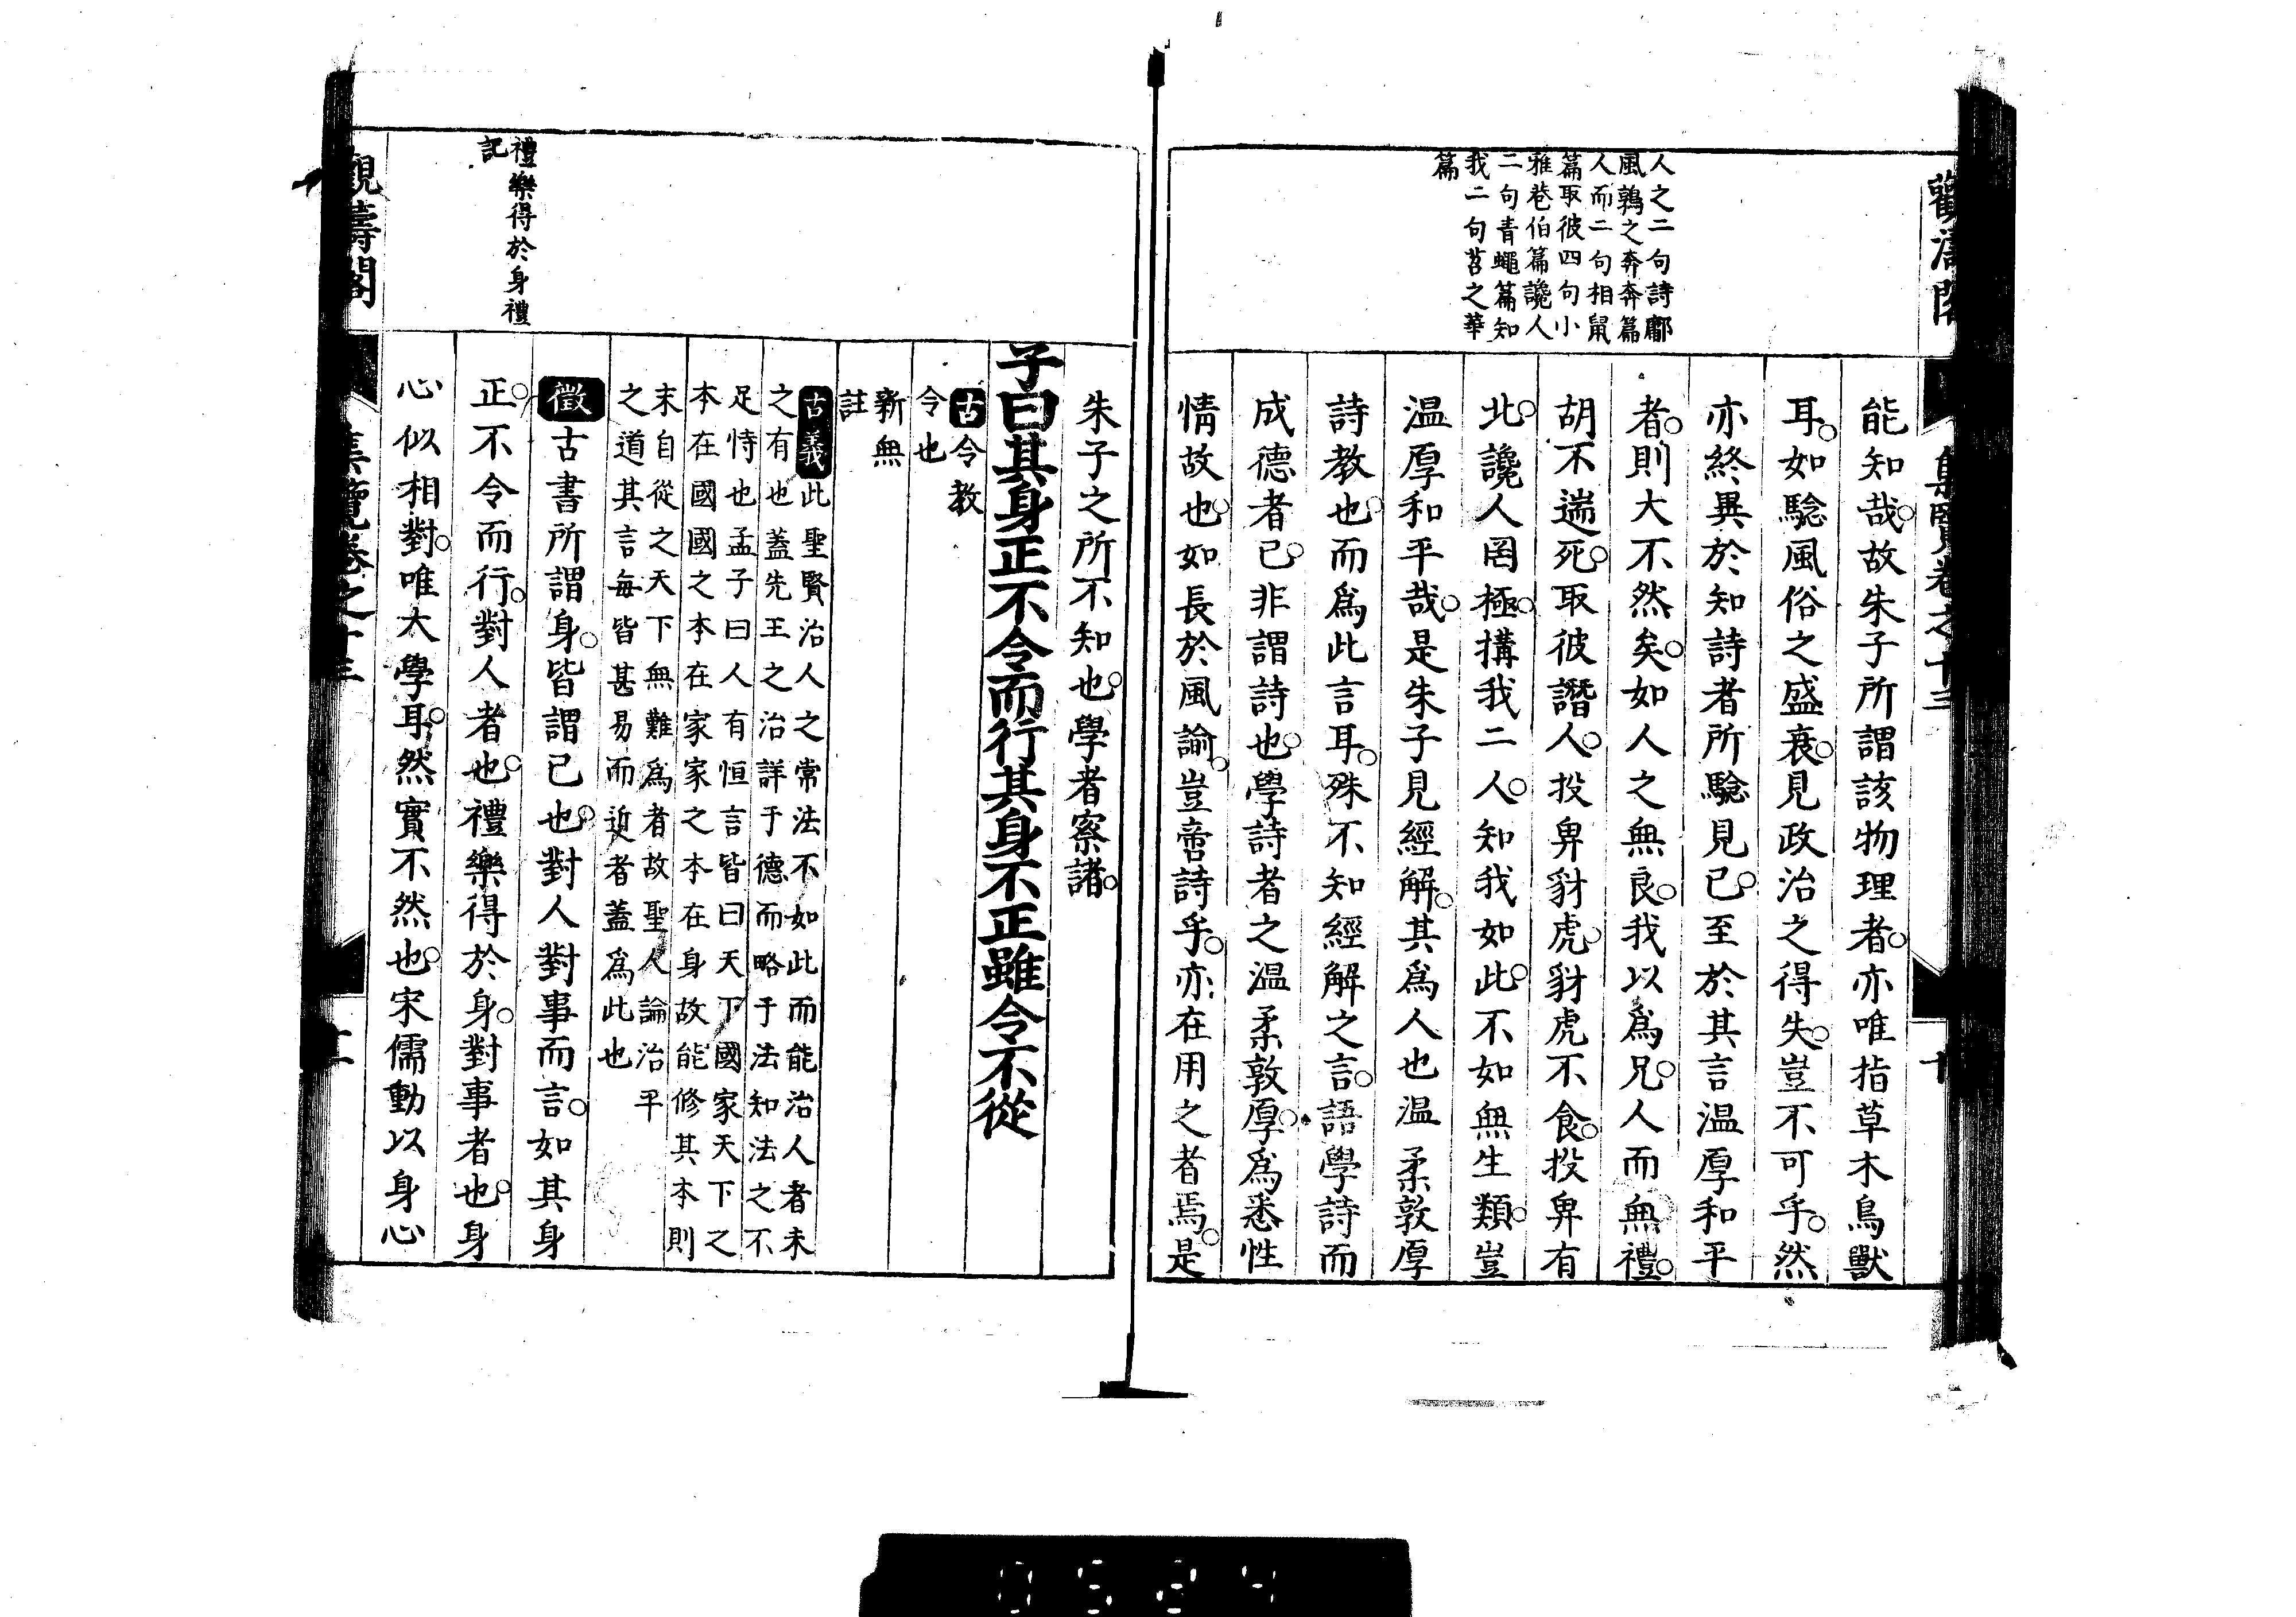 觀濤閣
集覽卷之十三
十
人之二句詩鄘
風鶉之奔奔篇
人而二句相鼠
篇取彼四句小
雅巷伯篇讒人
二句青蠅篇知
我二句苕之華
篇
能知哉故朱子所謂該物理者亦唯指草木鳥獸
耳如驗風俗之盛衰見政治之得失豈不可乎然
亦終異於知詩者所驗見已至於其言温厚和平
者則大不然矣如人之無良我以爲兄人而無禮
胡不遄死取彼譖人投畀豺虎豺虎不食投畀有
北讒人罔極構我二人知我如此不如無生類豈
温厚和平哉是朱子見經解其爲人也温柔敦厚
詩教也而爲此言耳殊不知經解之言語學詩而
成德者已非謂詩也學詩者之温柔敦厚爲悉性
情故也如長於風諭豈啻詩乎亦在用之者焉是
朱子之所不知也學者察諸
子曰其身正不令而行其身不正雖令不從
古令教
令也
新無
註
古義此聖賢治人之常法不如此而能治人者未
之有也蓋先王之治詳于德而略于法知法之不
足恃也孟子曰人有恒言皆曰天下國家天下之
本在國國之本在家家之本在身故能修其本則
末自從之天下無難爲者故聖人論治平
之道其言每皆甚易而近者蓋爲此也
禮樂得於身禮
記
徵古書所謂身皆謂己也對人對事而言如其身
正不令而行對人者也禮樂得於身對事者也身
心似相對唯大學耳然實不然也宋儒動以身心
觀濤閣
集覽卷之十三